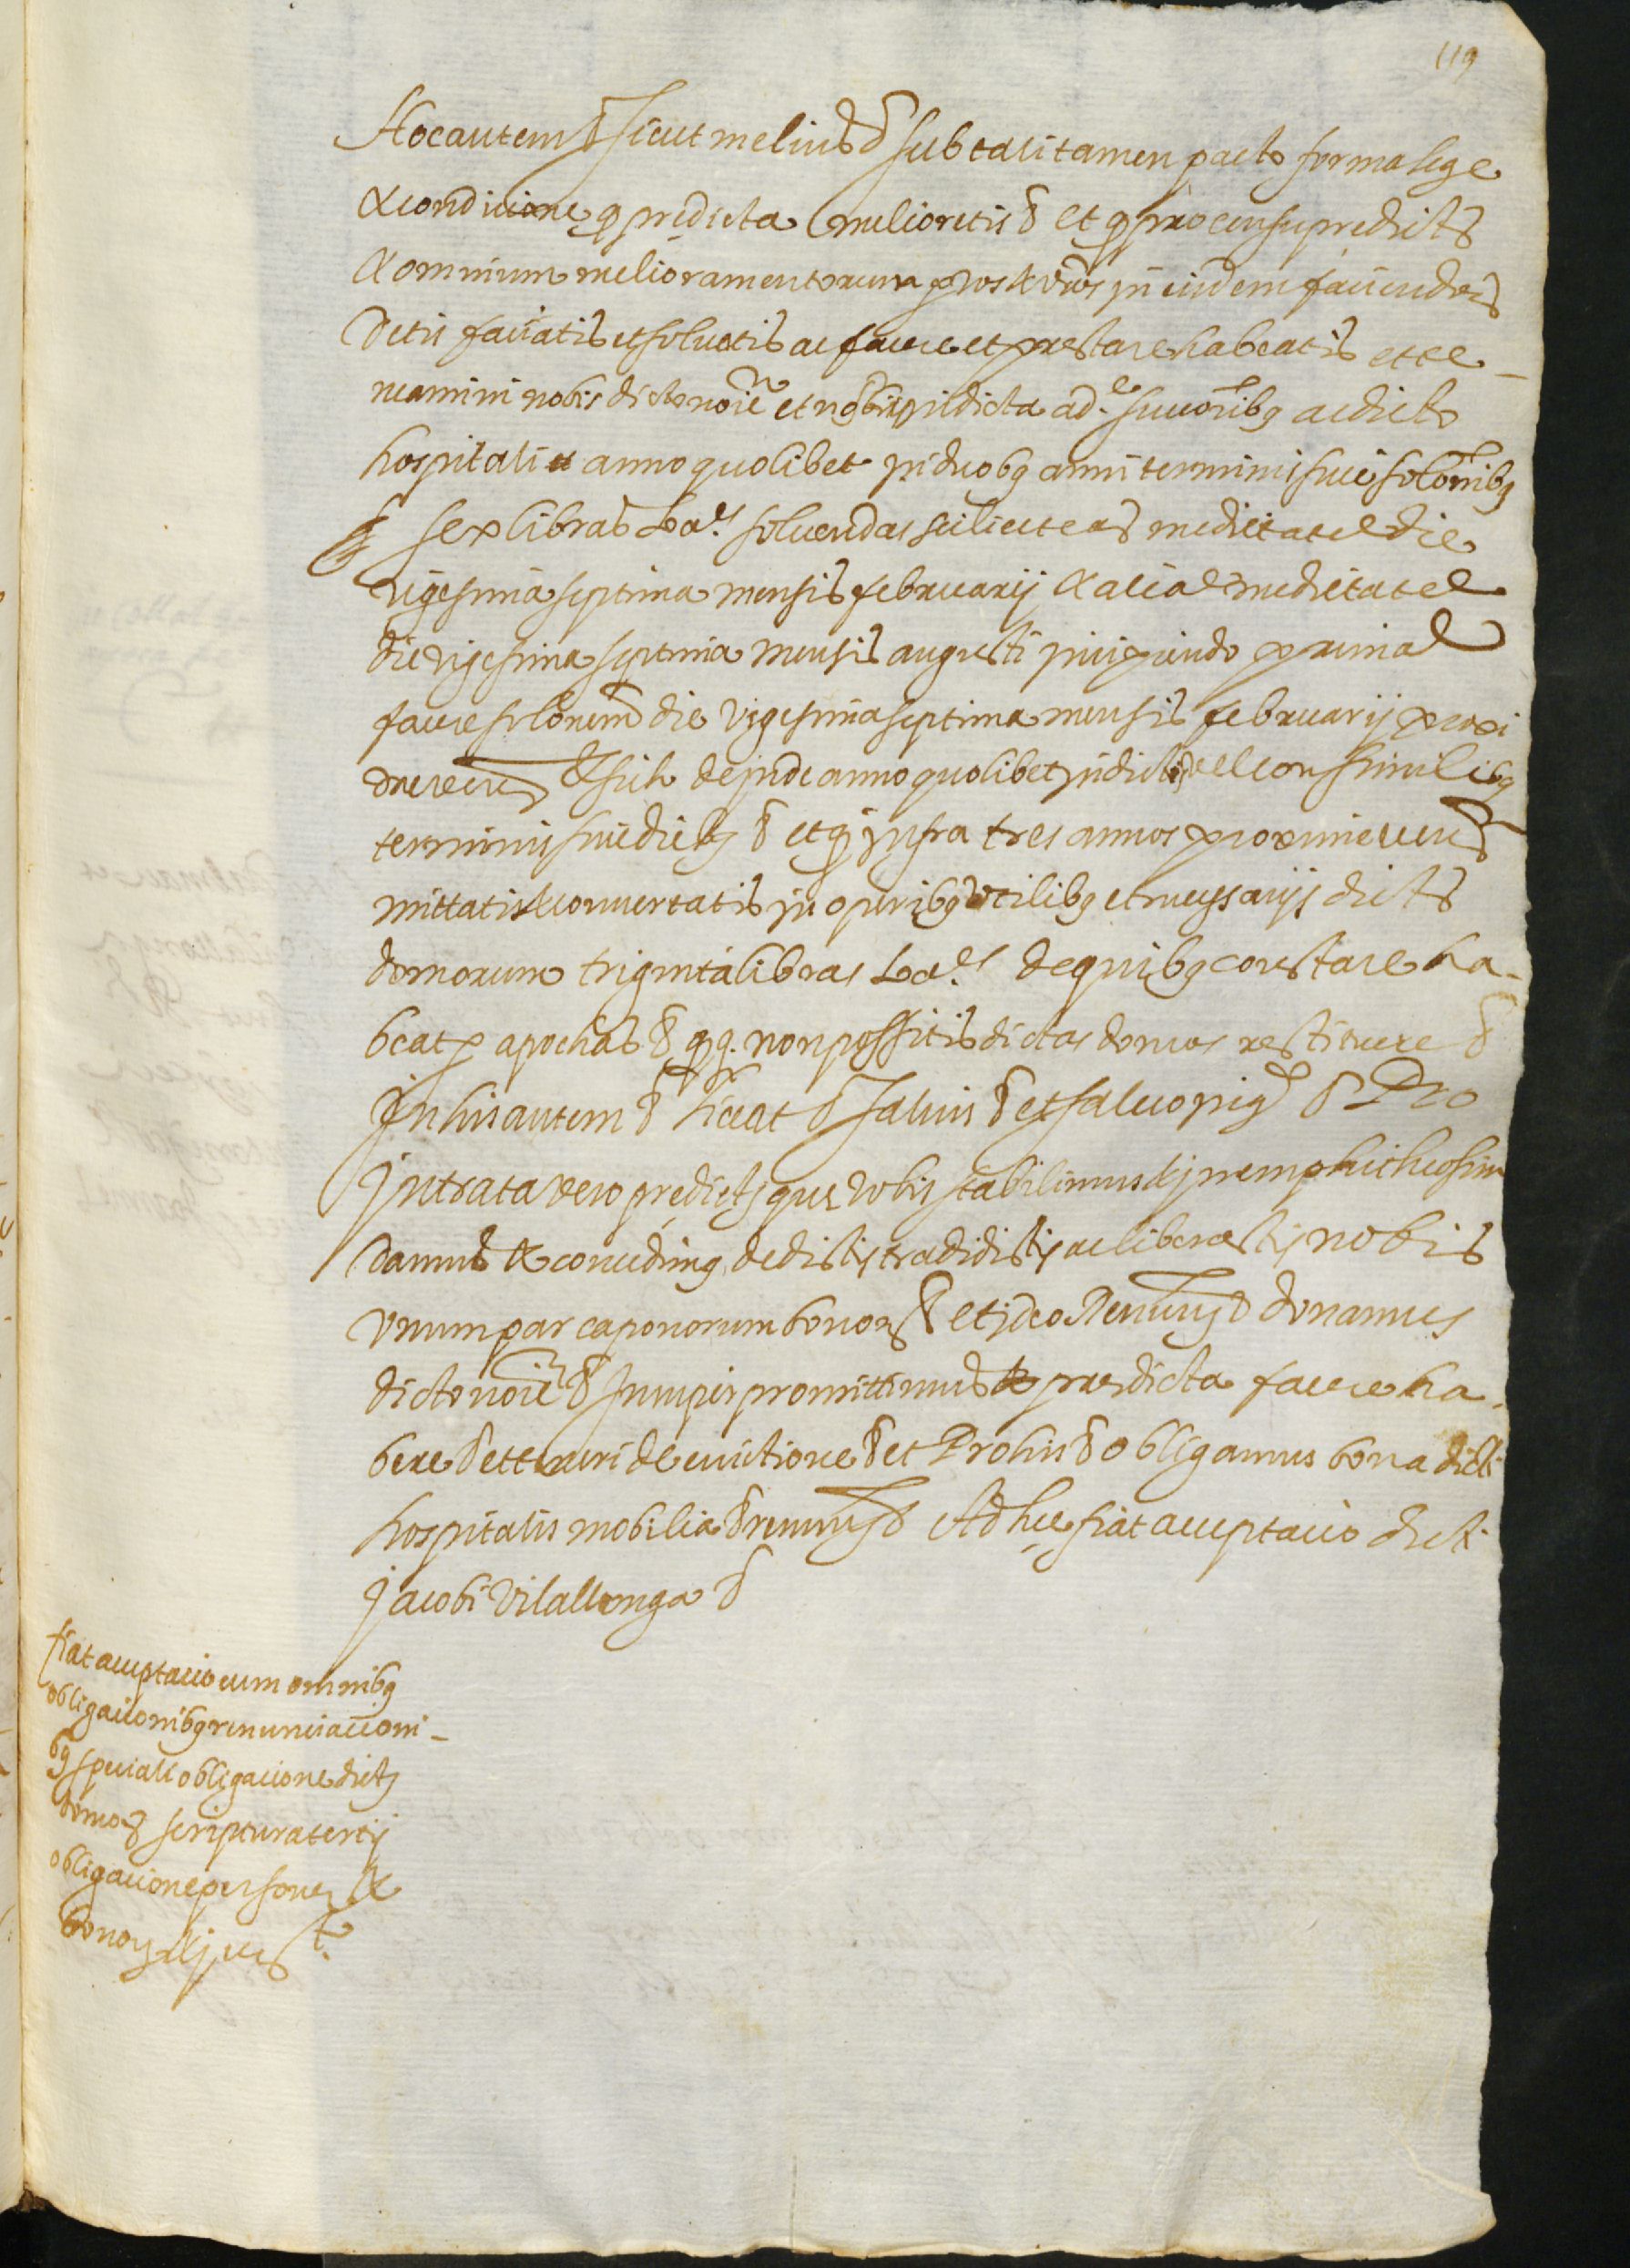 119
Hoc autem & sicut melius & sub tali tamen pacto forma lege
& condicione q predicta melioretis & et q pro censu predictis
& omnium melioramentorum p vos & vros in eisdem faciendis
detis faciatis et solvatis ac facere et prestare habeatis et te-
neamini nobis dicto noie et nobis in dicta ad.e succoribq ac dicto
hospitali anno quolibet in duobq anni terminis sive solonibq
sex libras Ba.es solvendas scilicet eas medietate die
vigesima septima mensis februarij & alia medietate
die vigesima septima mensis augusti incipiendo primam
facere solonem die vigesima septima mensis februarij proxi
me ven & sich deinde anno quolibet in dictis vel consimilibq
terminis sive diebq & et q infra tres annos proxime ven
mittatis & convertatis in operibq utilibq et necessarijs dictis
domorum triginta libras Ba.es de quibq constare ha-
beat p apochas & q q. non possitis dictas domos restituere &
In his autem & liceat & salvis & et salvo pig & Pro
Intrata vero predicts que vobis stabilimus & in emphitheosim
damus & concedimq dedistis tradidistis ac liberastis nobis
Unum par caponorum bonor & et ideo Renun & donamus
dicto noie & Insuper promittimus predicta facere ha-
bere & et teneri de evictione & et Pro his & obligamus bona dicti
hospitalis mobilia & renun & Ad hec fiat acceptacio dicti
Jacobi Vilallonga &
fiat acceptacio cum omnibq
obligacionibq renunciacioni-
bq speciali obligacione dicts
domor scriptura tercij
obligacione persone &
bonor & jur t.